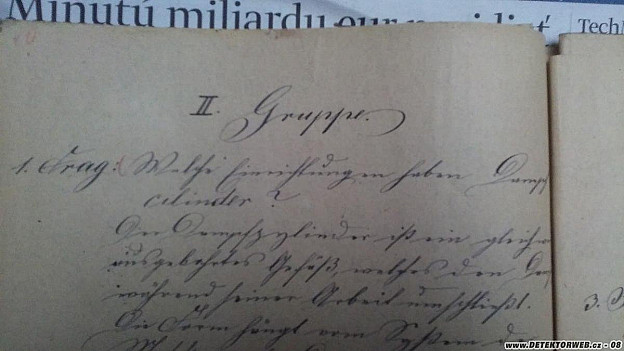 Minutú miliardu eur
Tech
II. Gruppe.
1. Frag: Welche Einrichtungen haben Dampf
cilinder ?
Der Dampfzylinder ist ein gleich
ausgebohrtes Gefäß, welches den
während seiner Arbeit umschließt.
Die Form hängt vom System
3.
www.DETEKTORWEB.cz - 08